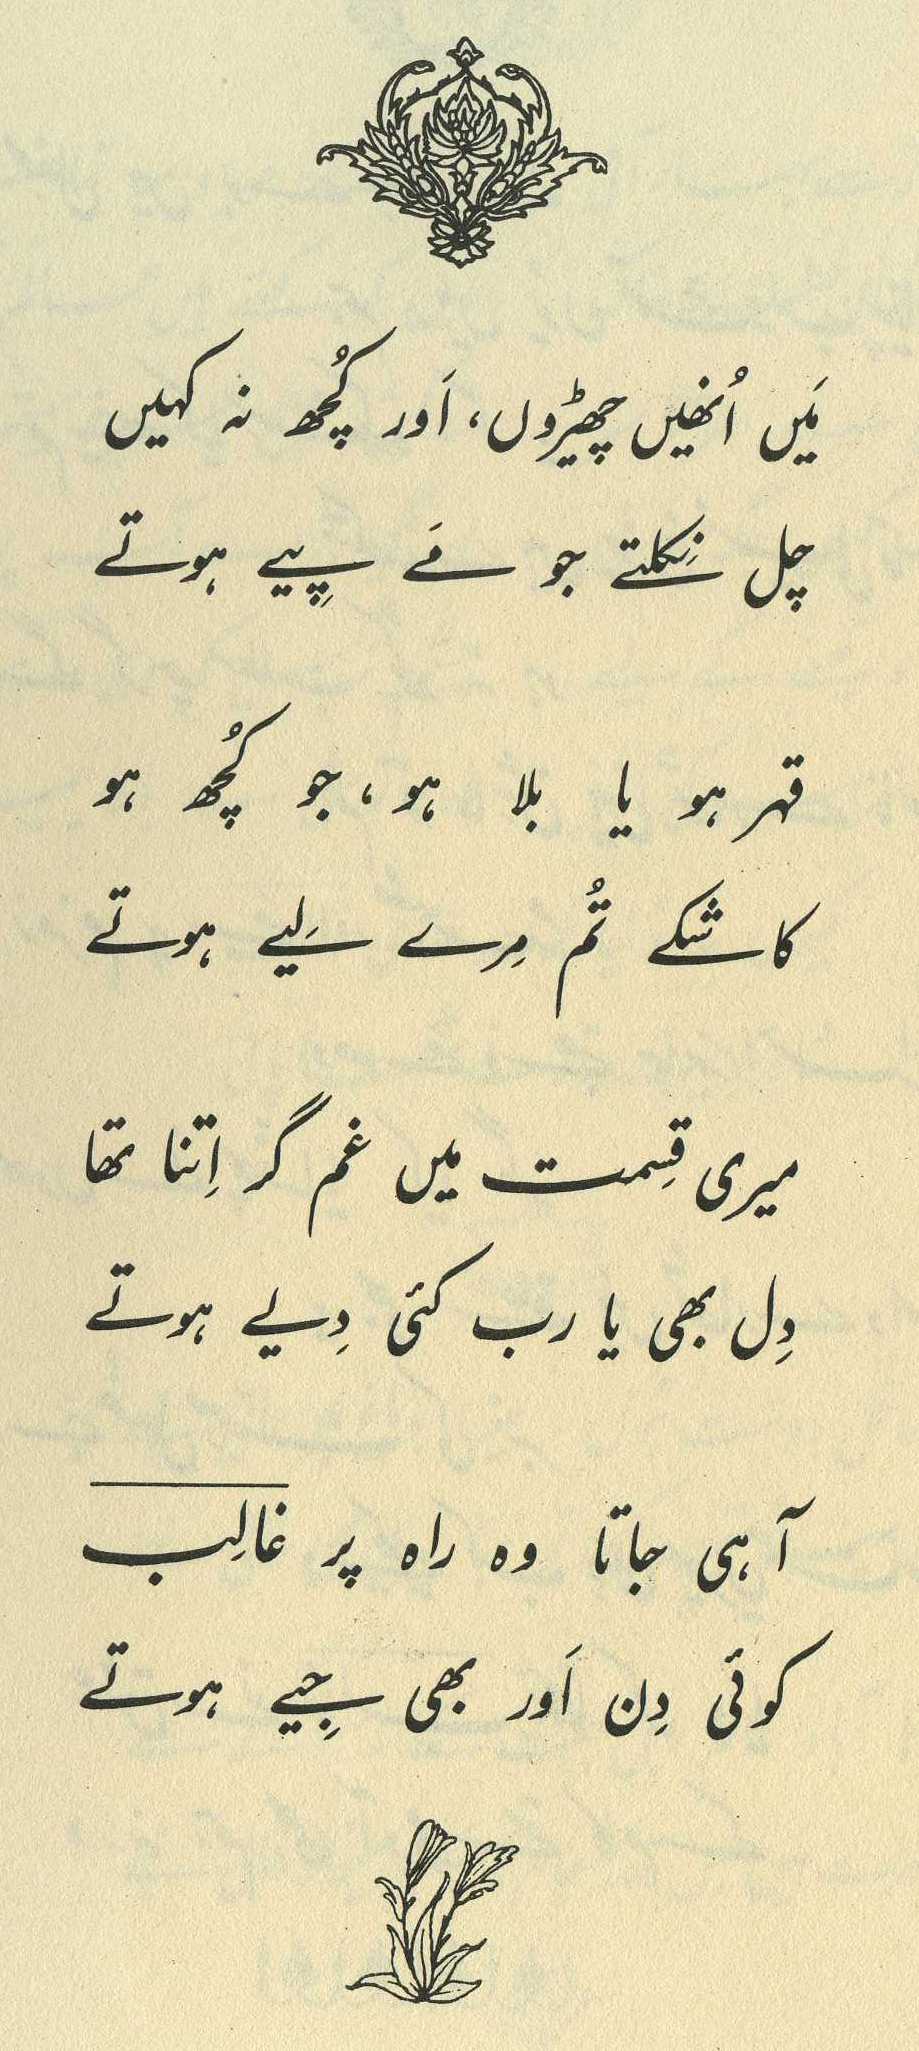 مَیں اُنھیں چھیڑوں، اَور کُچھ نہ کہیں
چل نِکلتے جو مَے پِیے ہوتے
قہر ہو یا بلا ہو، جو کُچھ ہو
کاشکے تُم مِرے لَیے ہوتے
میری قِسمت میں غم گر اِتنا تھا
دِل بھی یا رب کئی دِیے ہوتے
آ ہی جاتا وہ راہ پر غالِب
کوئی دِن اَور بھی جِیے ہوتے